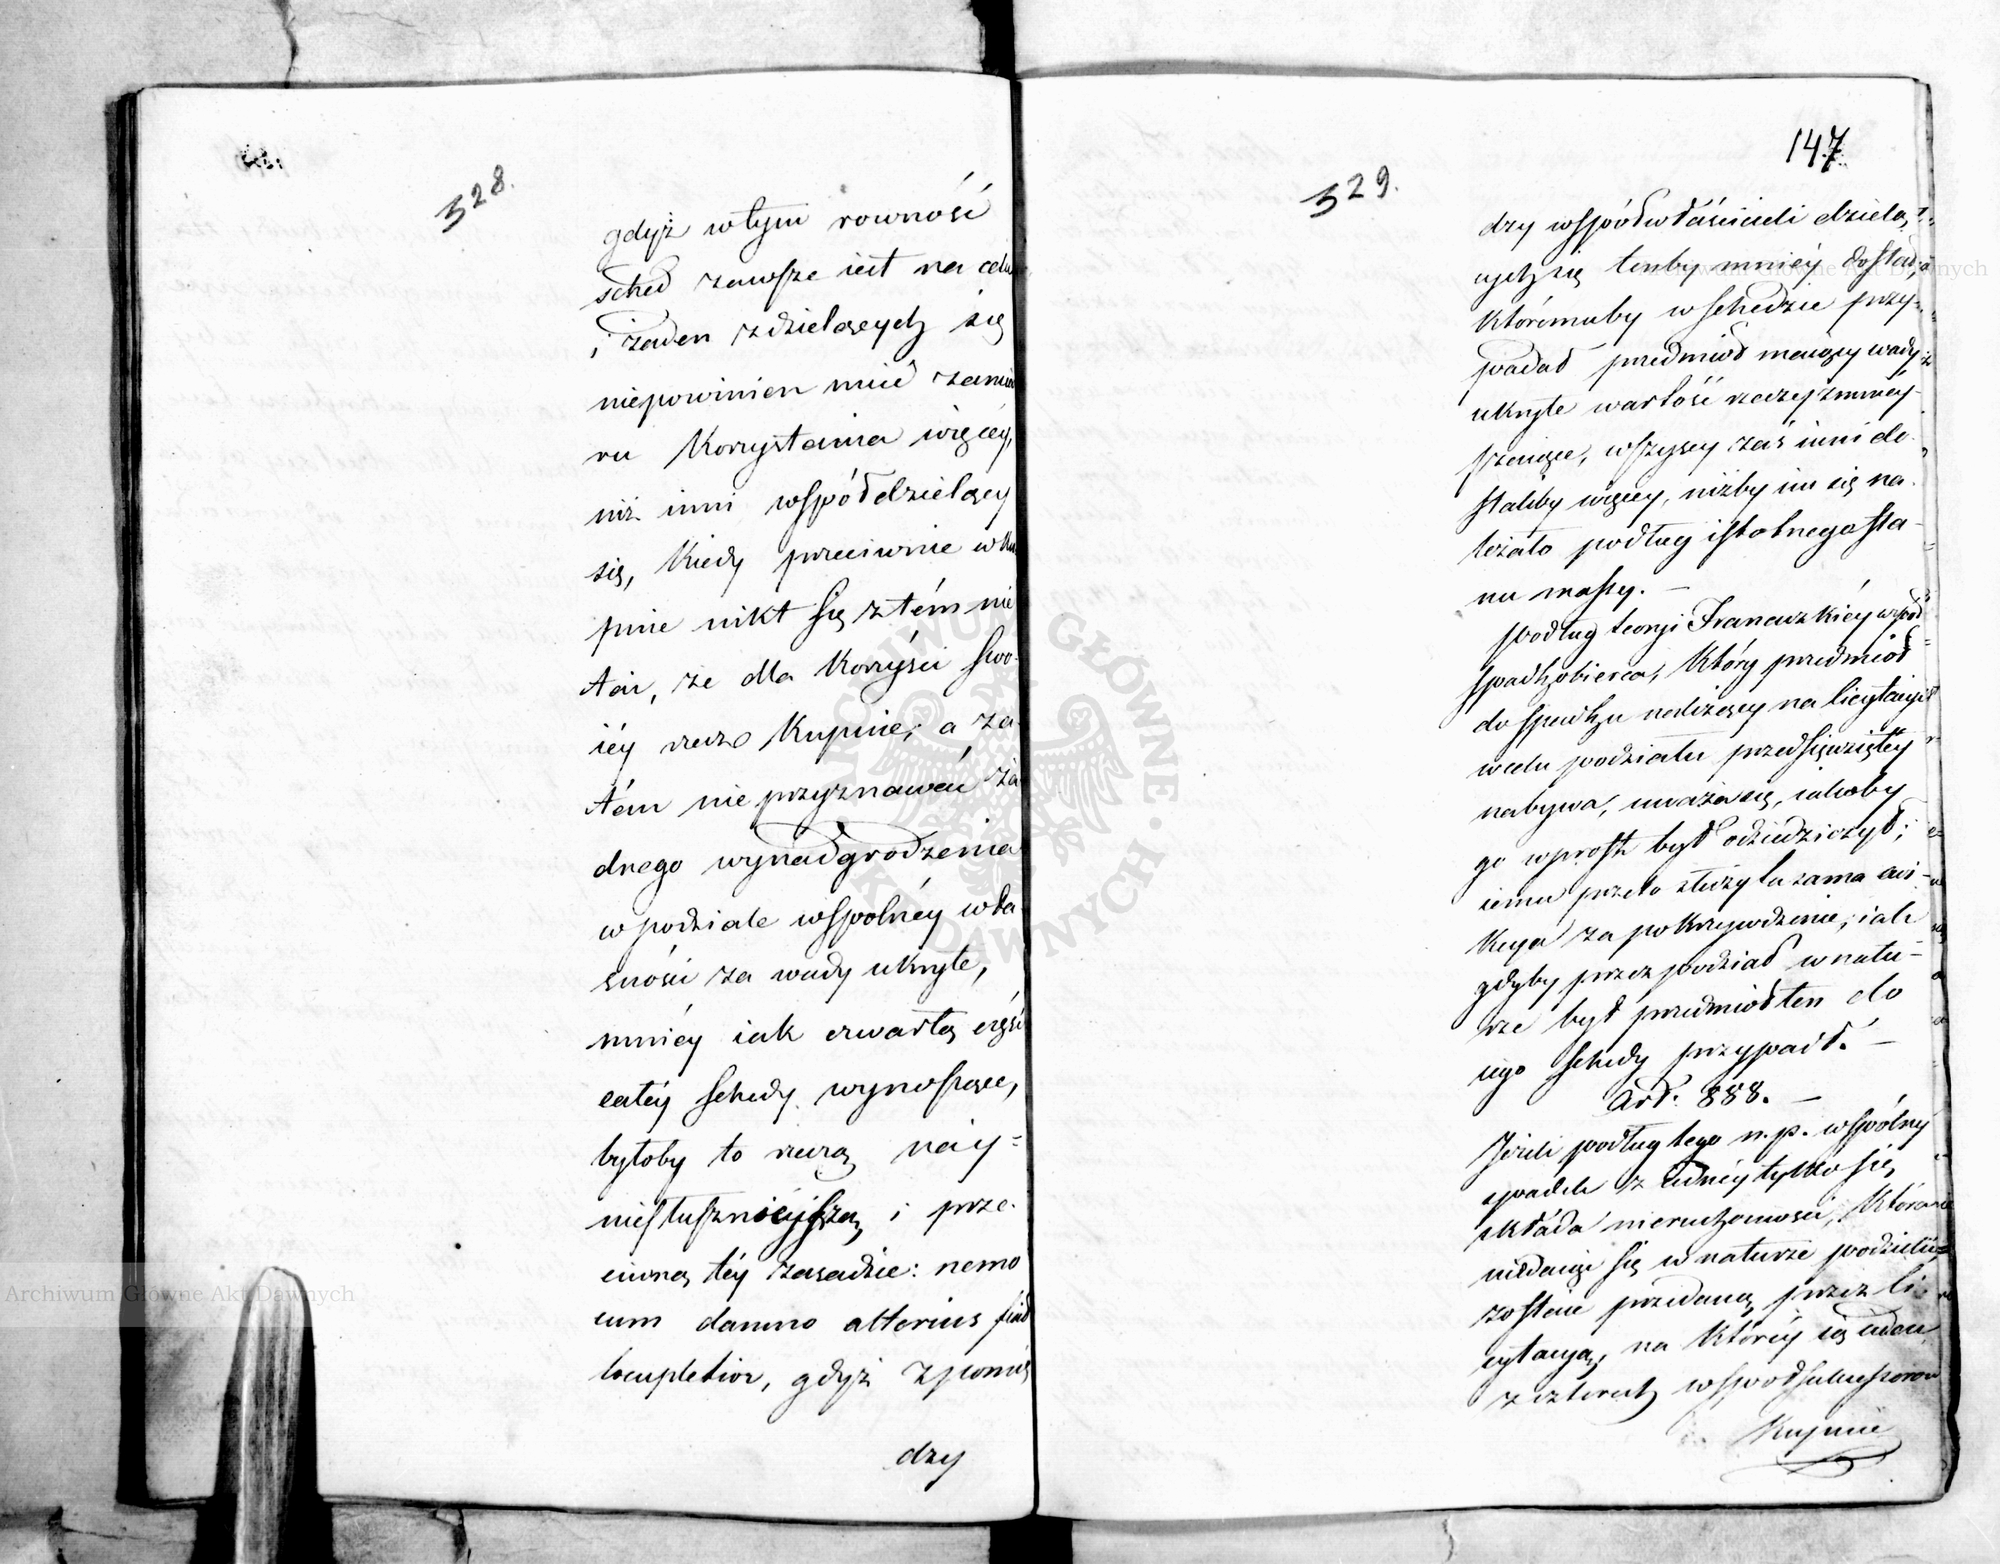 328.
gdyż w tym rowność
sched zawsze iest na celu
i żaden z dzielących się
niepowinien mieć zamia
ru Korzystania więcéy,
niż inni współdzielący
się, Kiedy przeciwnie w Ku
pnie nikt się z tém nie
tai, że dla Korzyści swo
iéy rzecz Kupuie; a za
tém nie przyznawać ża
dnego wynadgrodzenia
w podziale wspolnéy wła
sności za wady ukryte,
mniéy iak czwartą część
całéy schedy wynoszące,
byłoby to rzeczą nay=
niesłusznieyszą i prze
ciwną téy zasadzie: nemo
cum damno alterius fiat
locupletior, gdyż z pomię
dzy
147
329.
dzy współwłaścicieli dzielą
cych się tenby mniéy dostał,
któremuby w schedzie przy=
padał przedmiot maiący wady
ukryte wartość rzeczy zmniey
szaiące, wszyscy zaś inni do
staliby więcey, niżby im się na
leżało podług istotnego sta
nu massy. —
podług teoryi Francuzkiéy współ
spadkobierca, Który przedmiot
do spadku należący na licytacyi
w celu podziału przedsięwziętéy
nabywa, uważa się, iakoby
go wprost był odziedziczył;
iemu przeto służy ta sama ak
cya za pokrzywdzenie, iak
gdyby przez podział w natu=
rze był przedmiot ten do
iego schedy przypadł. —
Art: 888. —
Jeżeli podług tego n. p. wspólny
spadek z iednéy tylko się
składa nieruchomości, Która nie
niedaiąc się w naturze podzielić,
zostaie przedaną przez li
cytacyą, na Któréy ią ieden
z czterech współsukcessorow
Kupuie
Archiwum Główne Akt Dawnych
ARCHIWUM GŁÓWNE AKT DAWNYCH
Archiwum Główne Akt Dawnych